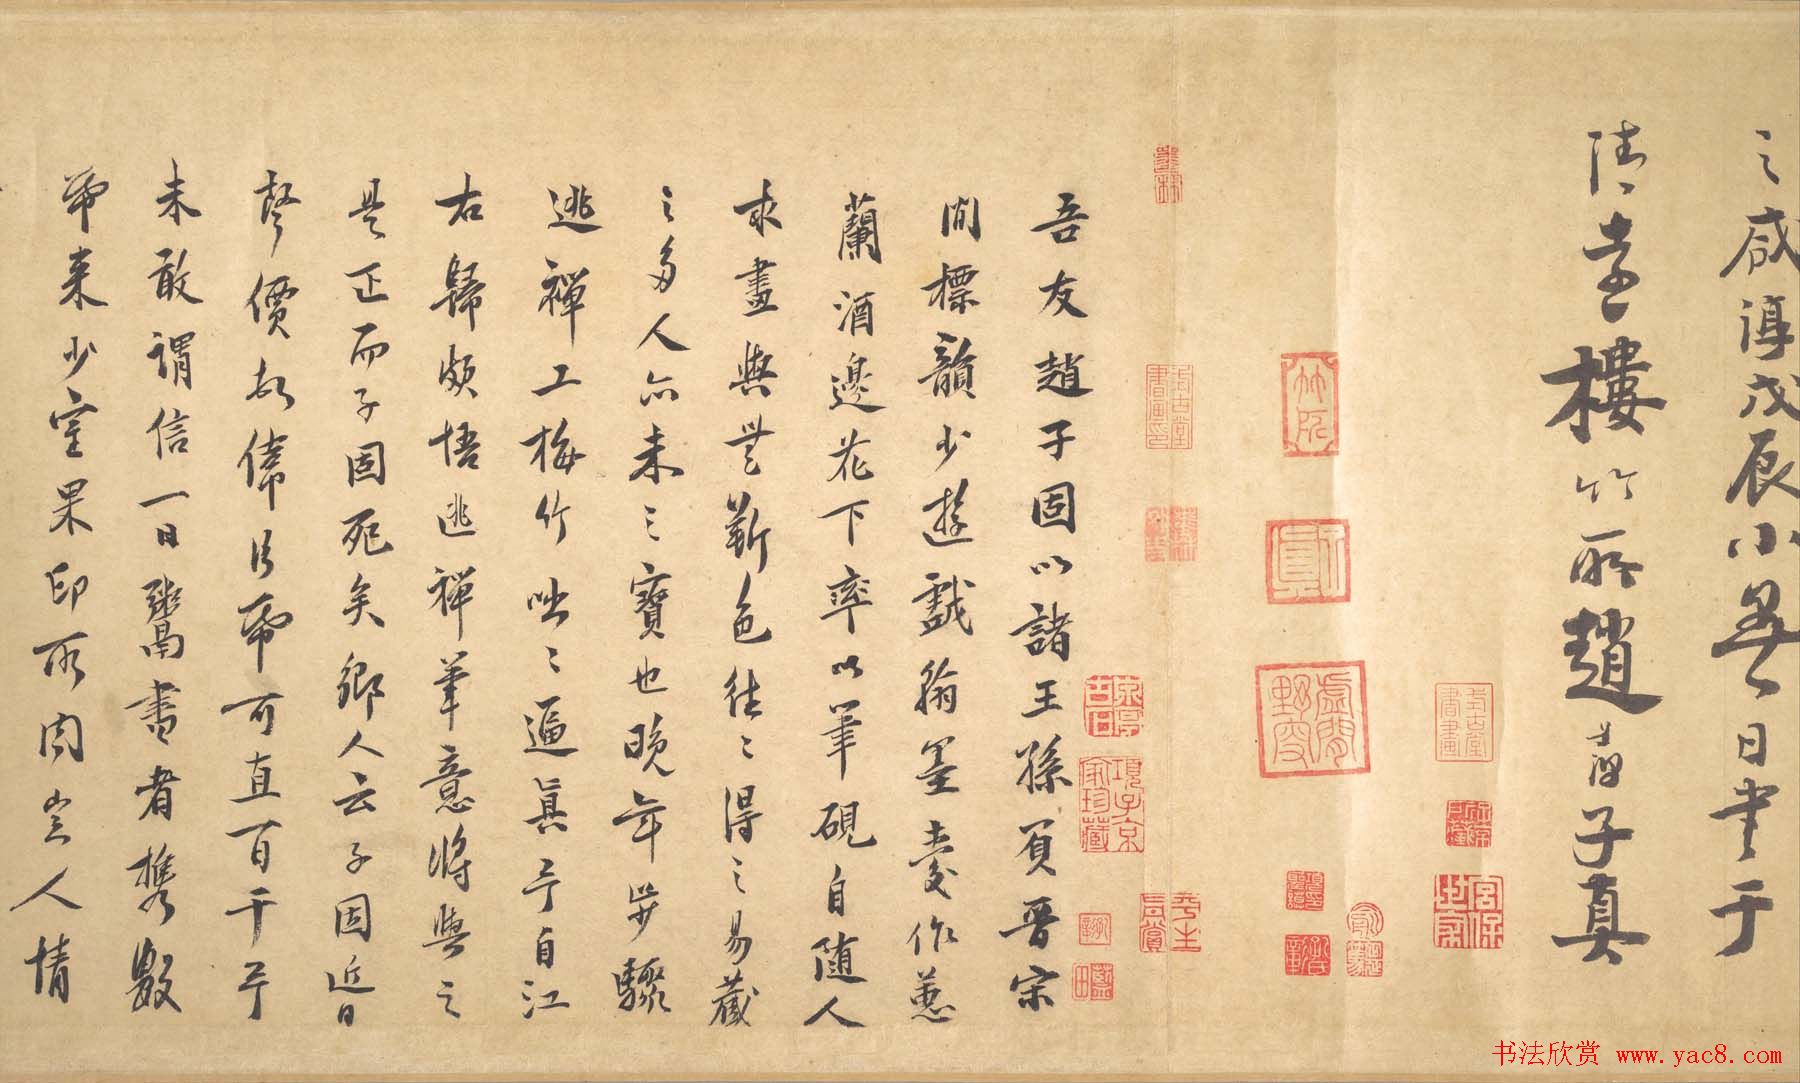 之咸淳戊辰小暑日書于
清遠樓竹所趙孟𤅉子真
吾友趙子固以諸王孫負晉宋
間標韻少遊戲翰墨愛作蕙
蘭酒邊花下率以筆硯自随人
求畫與無靳色往〻得之易藏
之多人亦未之寶也晚年步驟
逃禪工梅竹咄〻逼真予自江
右歸頗悟逃禪筆意將與之
是正而子固死矣鄉人云子固近日
聲價頓偉片幣可直百千予
未敢謂信一日鬻書者携數
幣来少室果印所聞豈人情
書法欣赏 www.yac8.com